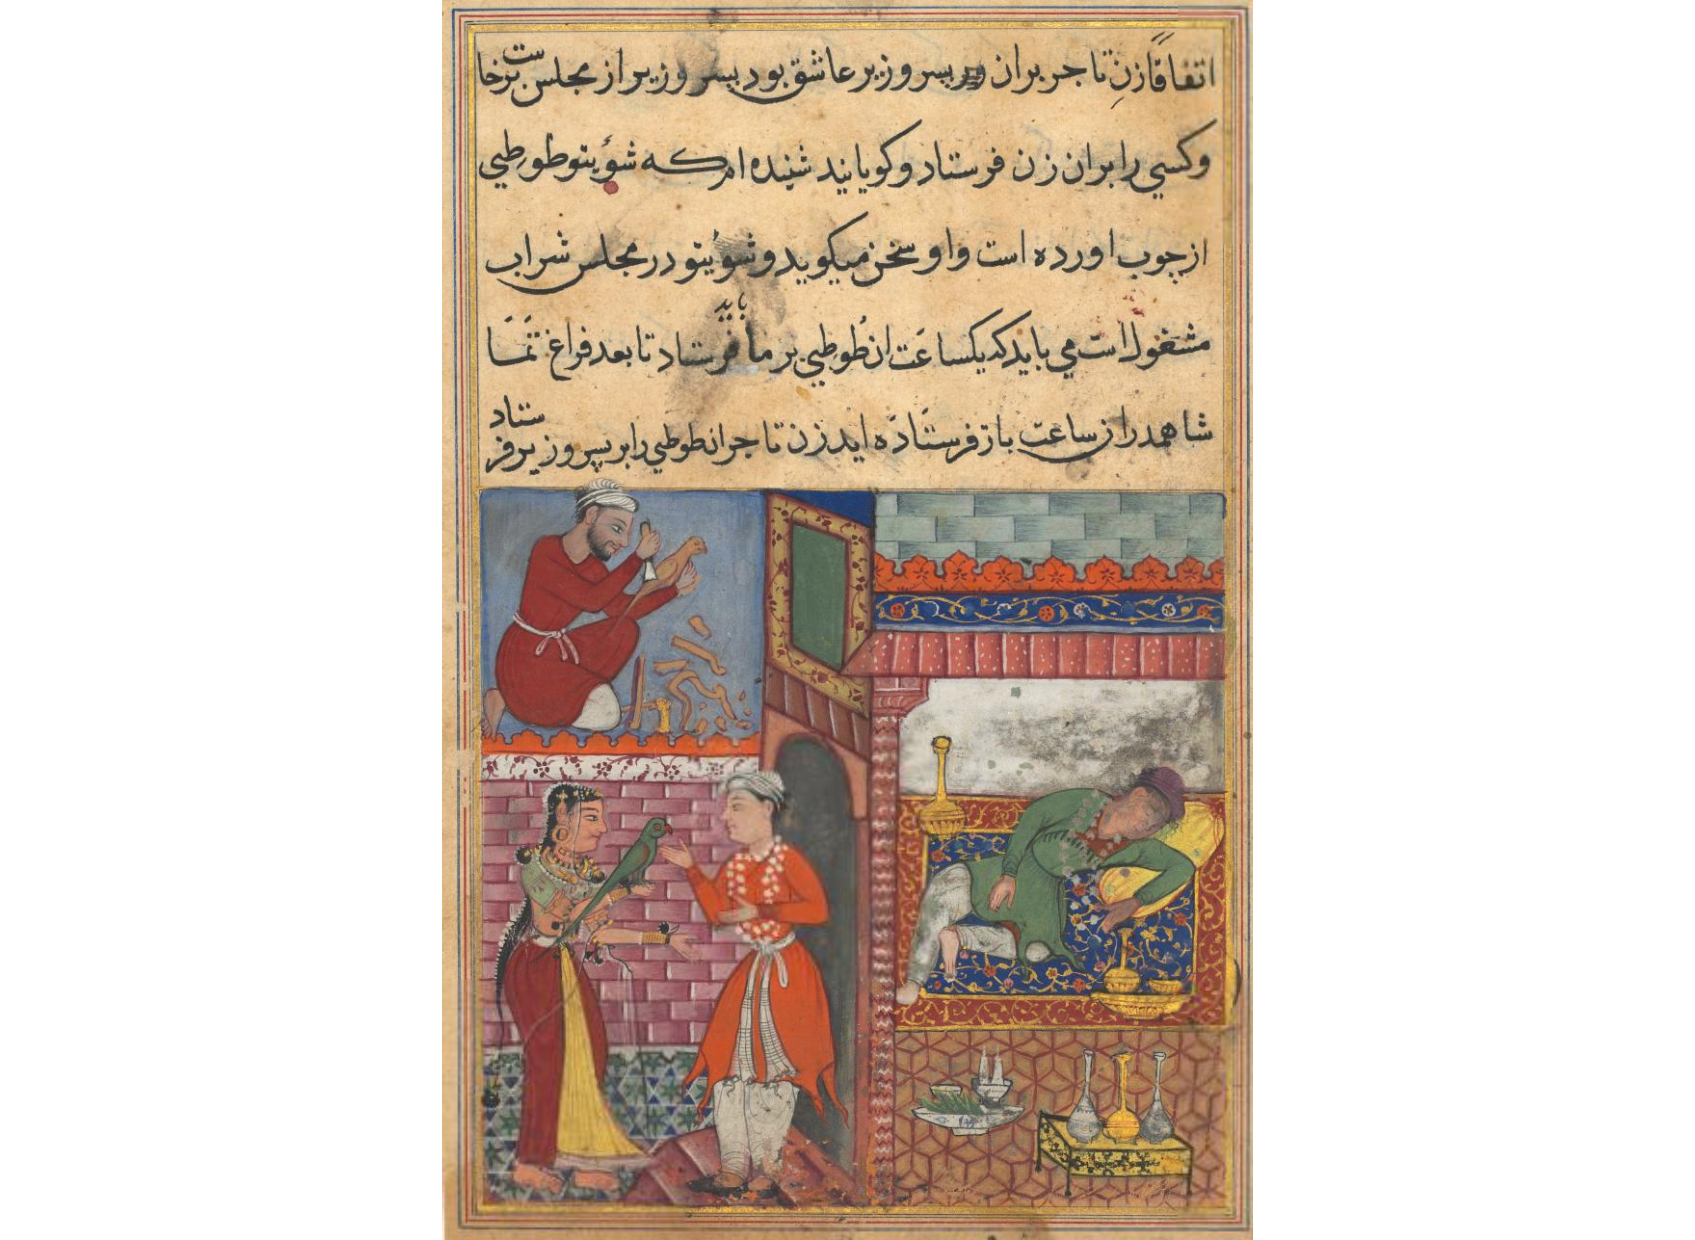 اتفاقاً زنِ تاجر بران وزیر پسر وزیر عاشق بود پسر وزیر از مجلس برخاست
وکسي را بران زن فرستاد و کویانید شنیده ام که شوٴیتو طوطیي
از چوب اورده است و او سخن میکوید و شوٴیتو در مجلس شراب
مشغول است مي باید که یکساعَت ان طُوطیي بر ما باید فرستاد تا بعد فراغ تَمَا
شا همدران ساعت باز فرستَادَه اید زن تاجر انطوطیي را بر پسر وزیر فرستاد